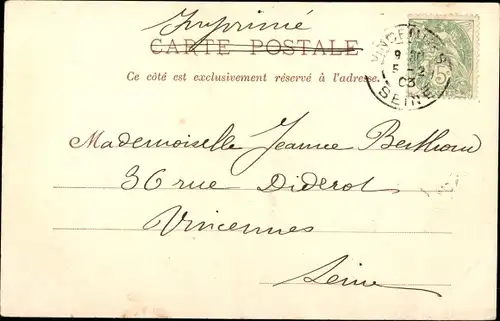 Imprimé
CARTE POSTALE
Ce côté est exclusivement réservé à l'adresse.
VINCENNES
5 -2
03
SEINE
5
Mademoiselle Jeanne Berthoud
36 rue Diderot
Vincennes
Seine